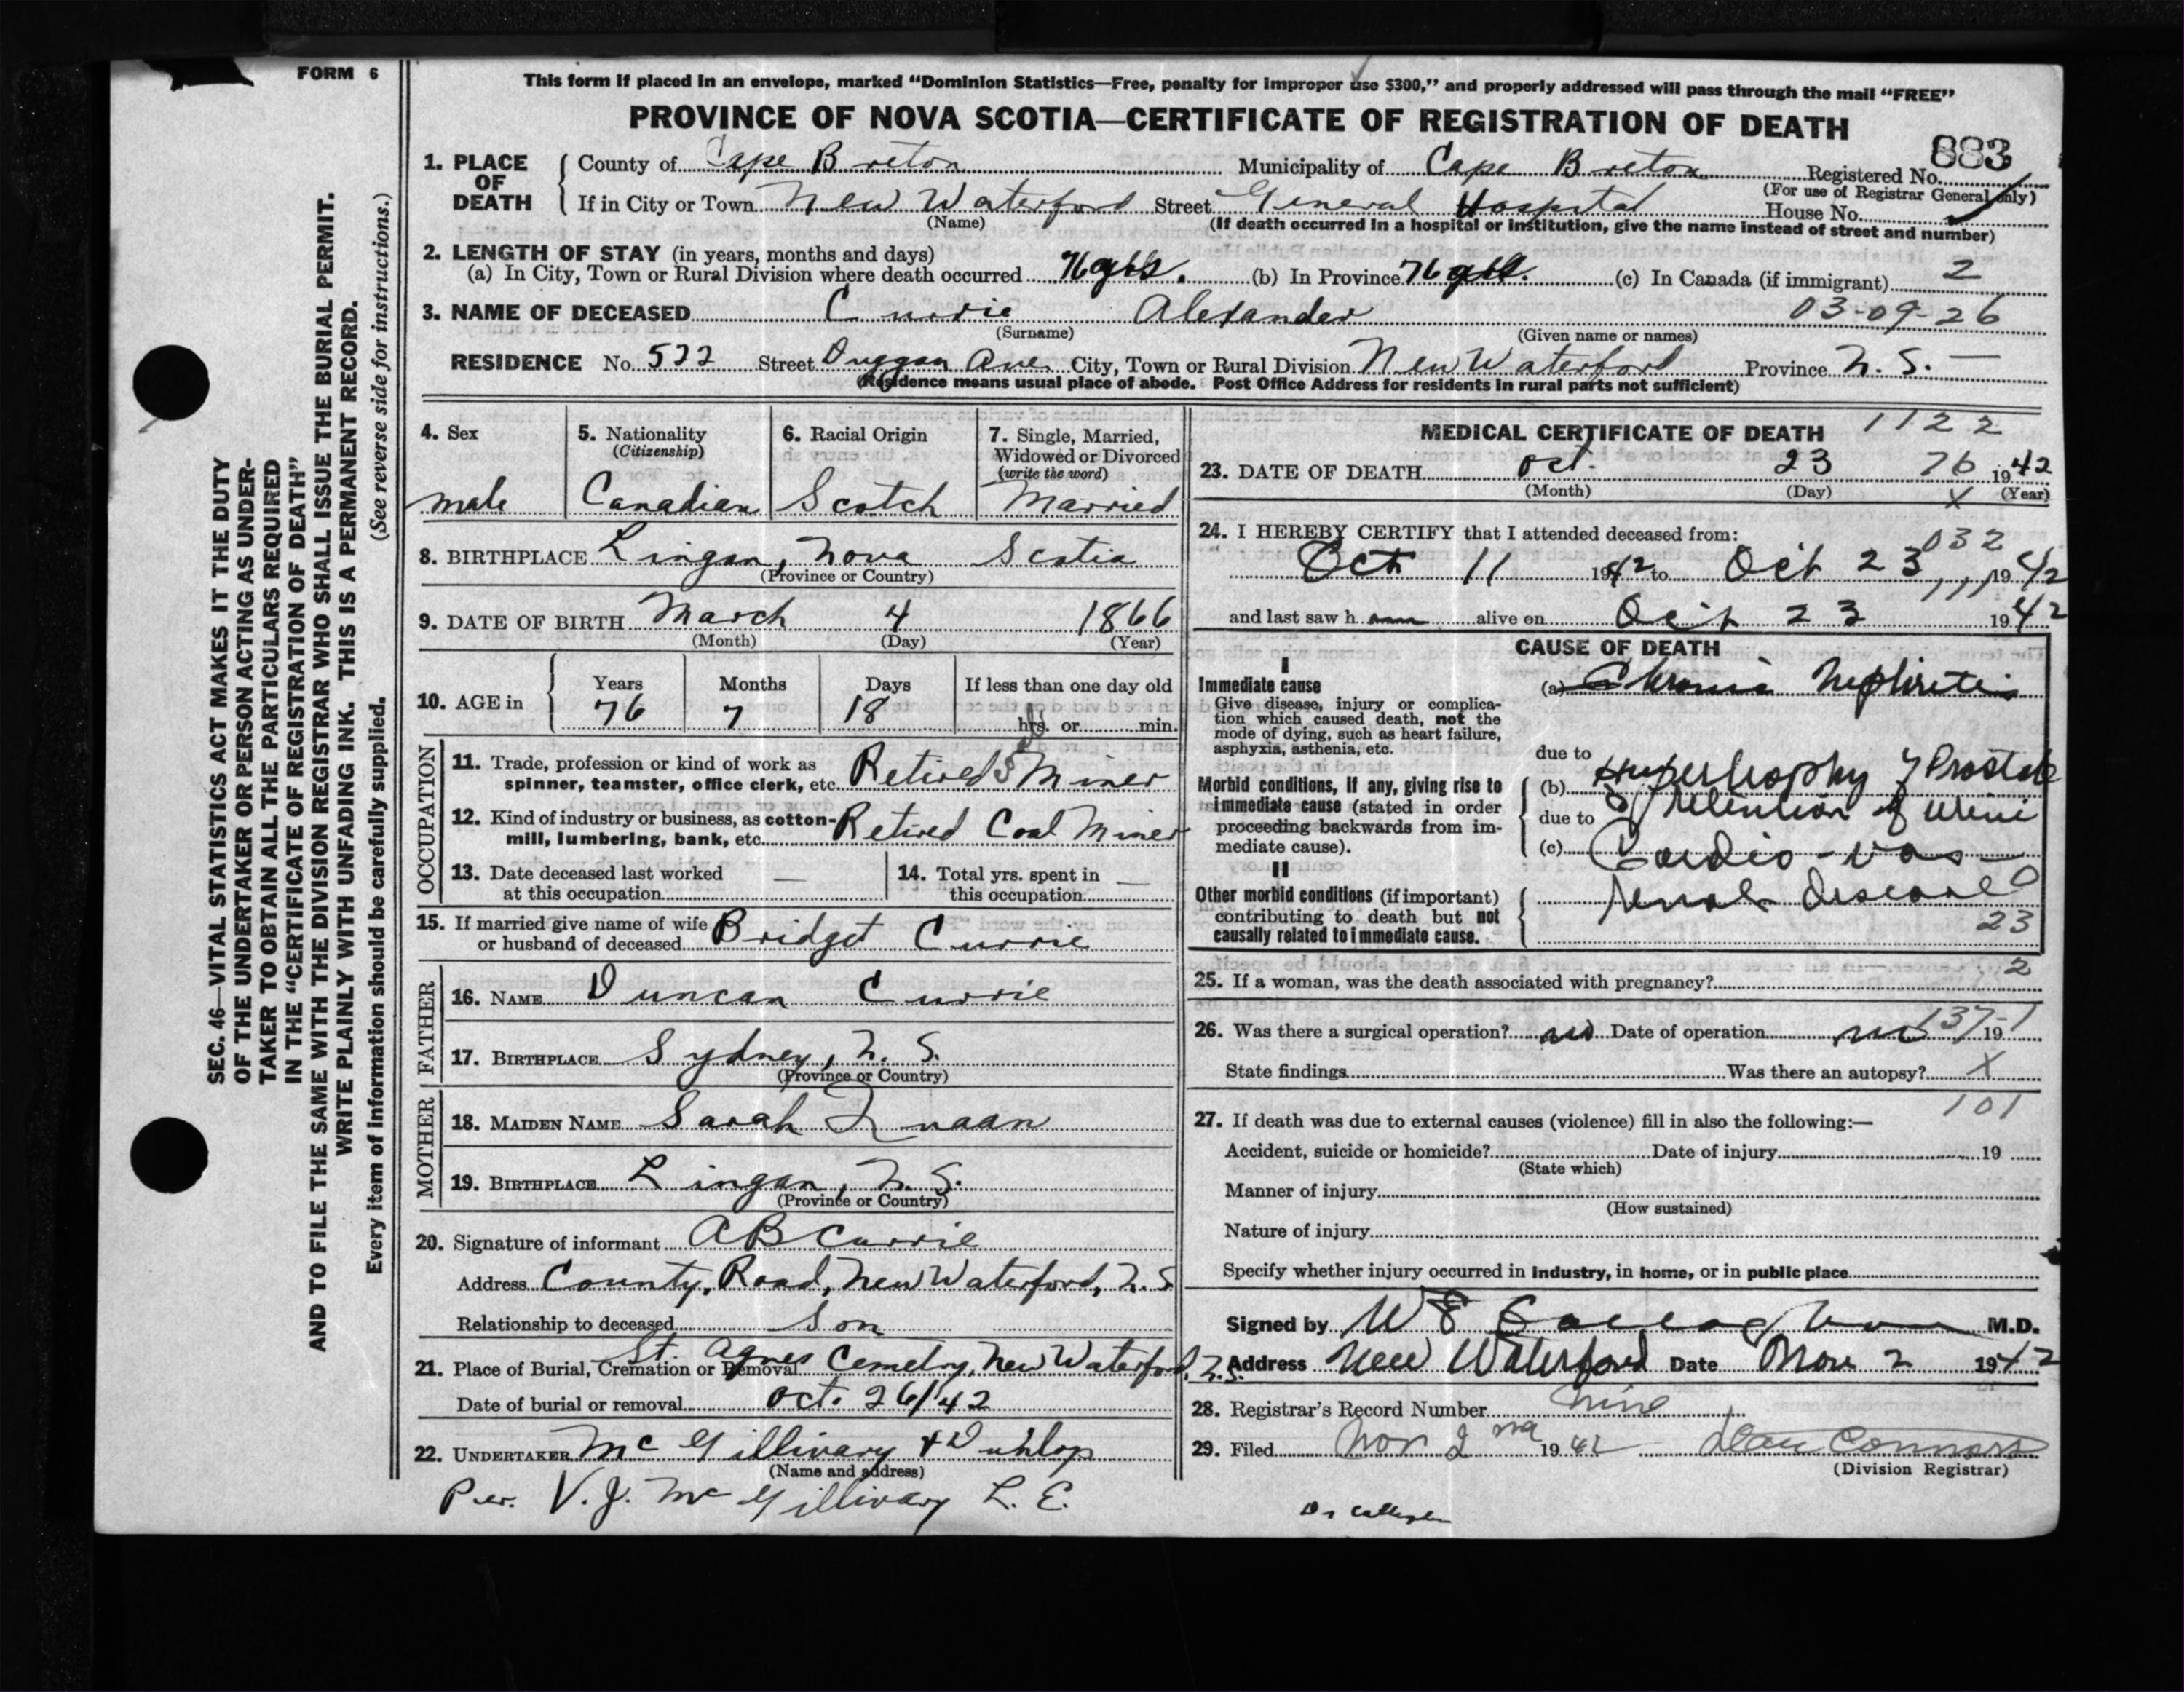 FORM 6
This form if placed in an envelope, marked “Dominion Statistics—Free, penalty for improper use $300,” and properly addressed will pass through the mail “FREE”
PROVINCE OF NOVA SCOTIA—CERTIFICATE OF REGISTRATION OF DEATH
883
1. PLACE OF DEATH County of Cape Breton Municipality of Cape Breton Registered No.
(For use of Registrar General only)
If in City or Town New Waterford Street General Hospital House No.
(Name) (If death occurred in a hospital or institution, give the name instead of street and number)
2. LENGTH OF STAY (in years, months and days)
(a) In City, Town or Rural Division where death occurred 76 (b) In Province 76 (c) In Canada (if immigrant) 2
3. NAME OF DECEASED Currie Alexander 03-09-26
(Surname) (Given name or names)
RESIDENCE No. 522 Street Duggan Ave. City, Town or Rural Division New Waterford Province N. S. —
(Residence means usual place of abode. Post Office Address for residents in rural parts not sufficient)
4. Sex 5. Nationality (Citizenship) 6. Racial Origin 7. Single, Married, Widowed or Divorced (write the word)
male Canadian Scotch Married
8. BIRTHPLACE Lingan, Nova Scotia
(Province or Country)
9. DATE OF BIRTH March 4 1866
(Month) (Day) (Year)
10. AGE in Years Months Days If less than one day old
76 7 18 hrs. or min.
OCCUPATION
11. Trade, profession or kind of work as spinner, teamster, office clerk, etc. Retired Miner
12. Kind of industry or business, as cotton-mill, lumbering, bank, etc. Retired Coal Miner
13. Date deceased last worked at this occupation —
14. Total yrs. spent in this occupation —
15. If married give name of wife or husband of deceased Bridget Currie
FATHER
16. NAME Duncan Currie
17. BIRTHPLACE Sydney, N. S.
(Province or Country)
MOTHER
18. MAIDEN NAME Sarah
19. BIRTHPLACE Lingan, N. S.
(Province or Country)
20. Signature of informant A B Currie
Address County, Road, New Waterford, N. S
Relationship to deceased Son
21. Place of Burial, Cremation or Removal St. Agnes Cemetry, New Waterford, N. S.
Date of burial or removal Oct. 26/42
22. UNDERTAKER McGillivary & Dunlop
(Name and address)
Per. V. J. McGillivary L. E.
MEDICAL CERTIFICATE OF DEATH 1122
23. DATE OF DEATH Oct. 23 76 1942
(Month) (Day) X (Year)
24. I HEREBY CERTIFY that I attended deceased from:
032
Oct 11 1942 to Oct 23 1942
111
and last saw h alive on Oct 23 1942
CAUSE OF DEATH
I
Immediate cause
Give disease, injury or complication which caused death, not the mode of dying, such as heart failure, asphyxia, asthenia, etc.
(a) Chronic Nephritis
due to
Morbid conditions, if any, giving rise to immediate cause (stated in order proceeding backwards from immediate cause).
(b) Hypertrophy of Prostate
due to Retention of urine
(c) Cardio-vas-
II
Other morbid conditions (if important) contributing to death but not causally related to immediate cause.
renal disease 0
23
2
25. If a woman, was the death associated with pregnancy?
26. Was there a surgical operation? no Date of operation no 137-1 19
State findings Was there an autopsy? X
101
27. If death was due to external causes (violence) fill in also the following:—
Accident, suicide or homicide? Date of injury 19
(State which)
Manner of injury
(How sustained)
Nature of injury
Specify whether injury occurred in industry, in home, or in public place
Signed by W E M.D.
Address New Waterford Date Nov 2 1942
28. Registrar's Record Number nine
29. Filed Nov 2nd 1942 Dan Connors
(Division Registrar)
SEC. 46—VITAL STATISTICS ACT MAKES IT THE DUTY
OF THE UNDERTAKER OR PERSON ACTING AS UNDER-
TAKER TO OBTAIN ALL THE PARTICULARS REQUIRED
IN THE “CERTIFICATE OF REGISTRATION OF DEATH”
AND TO FILE THE SAME WITH THE DIVISION REGISTRAR WHO SHALL ISSUE THE BURIAL PERMIT.
WRITE PLAINLY WITH UNFADING INK. THIS IS A PERMANENT RECORD.
Every item of information should be carefully supplied. (See reverse side for instructions.)